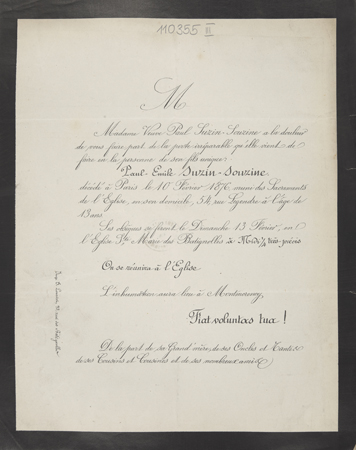 110355 III
M
Madame Veuve Paul Suzin-Souzine a la douleur
de vous faire part de la perte irréparable qu'elle vient de
faire en la personne de son fils unique
Paul-Emile Suzin-Souzine,
décédé à Paris le 10 Février 1870, muni des Sacrements
de l'Eglise, en son domicile, 54, rue Legendre à l'âge de
13 ans
Ses obsèques se feront le Dimanche 13 Février, en
l'Eglise Ste Marie des Batignolles à Midi ¼ très-précis
On se réunira à l'Eglise
L'inhumation aura lieu à Montmorency,
Fiat voluntas tua !
De la part de sa Grand'mère, de ses Oncles et Tantes
de ses Cousins et Cousines et de ses nombreux amis